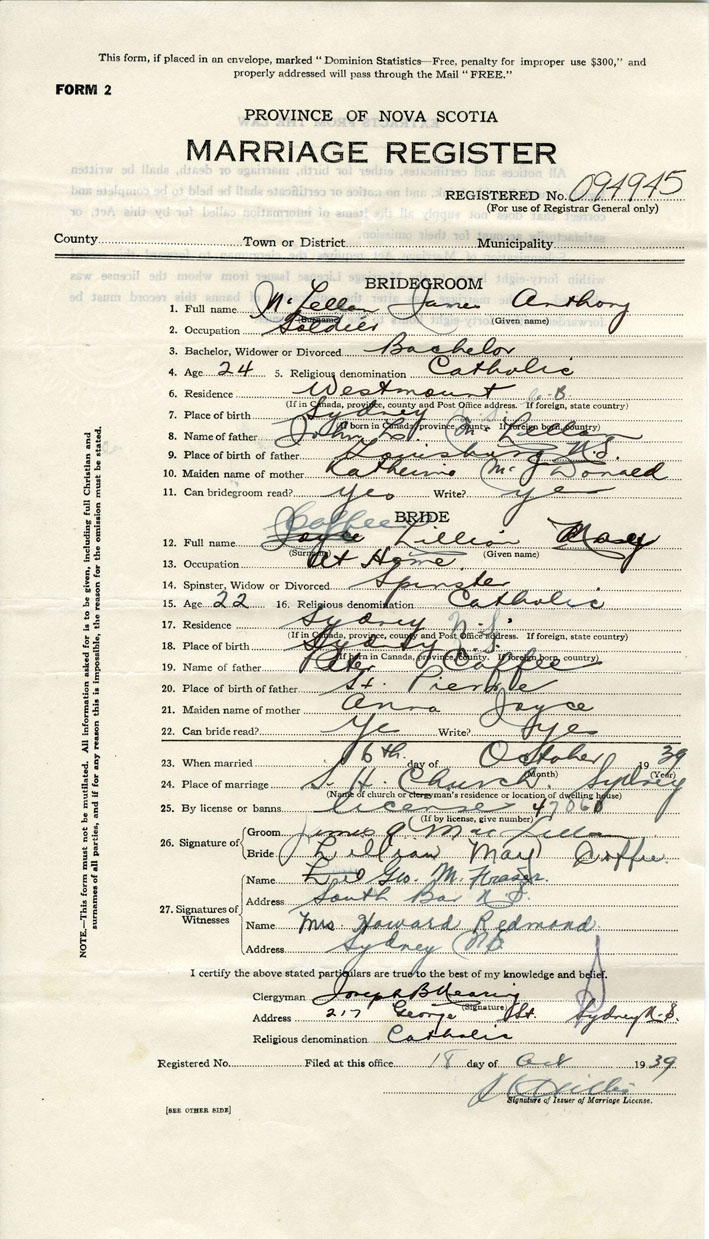 This form, if placed in an envelope, marked "Dominion Statistics—Free, penalty for improper use $300," and
properly addressed will pass through the Mail "FREE."
FORM 2
PROVINCE OF NOVA SCOTIA
MARRIAGE REGISTER
REGISTERED No. 094945
(For use of Registrar General only)
County Town or District Municipality
BRIDEGROOM
1. Full name McLellan James Anthony
(Surname) (Given name)
2. Occupation Soldier
3. Bachelor, Widower or Divorced Bachelor
4. Age 24 5. Religious denomination Catholic
6. Residence Westmount C.B
(If in Canada, province, county and Post Office address. If foreign, state country)
7. Place of birth Sydney
(If born in Canada, province, county. If foreign born, country)
8. Name of father John L. McLellan
9. Place of birth of father Louisburg N.S.
10. Maiden name of mother Katherine McDonald
11. Can bridegroom read? yes Write? yes
BRIDE
Coffee
12. Full name Joyce Lillian Mary
(Surname) (Given name)
13. Occupation At Home
14. Spinster, Widow or Divorced Spinster
15. Age 22 16. Religious denomination Catholic
17. Residence Sydney N.S.
(If in Canada, province, county and Post Office address. If foreign, state country)
18. Place of birth Sydney
(If born in Canada, province, county. If foreign born, country)
19. Name of father Peter Coffee
20. Place of birth of father St. Pierre
21. Maiden name of mother Anna Joyce
22. Can bride read? Yes Write? yes
23. When married 16th day of October 1939
(Month) (Year)
24. Place of marriage S. H. Church, Sydney
(Name of church or clergyman's residence or location of dwelling house)
25. By license or banns license 47060
(If by license, give number)
26. Signature of
Groom James A MacLellan
Bride Lillian May Coffie
27. Signatures of Witnesses
Name Geo. M. Fraser.
Address South Bar N S.
Name Mrs. Howard Redmond
Address Sydney NS
I certify the above stated particulars are true to the best of my knowledge and belief.
Clergyman Joseph B Nearing
(Signature)
Address 217 George St. Sydney N.S.
Religious denomination Catholic
Registered No. Filed at this office 18 day of Oct 1939
Signature of Issuer of Marriage License.
[SEE OTHER SIDE]
NOTE.—This form must not be mutilated. All information asked for is to be given, including full Christian and
surnames of all parties, and if for any reason this is impossible, the reason for the omission must be stated.